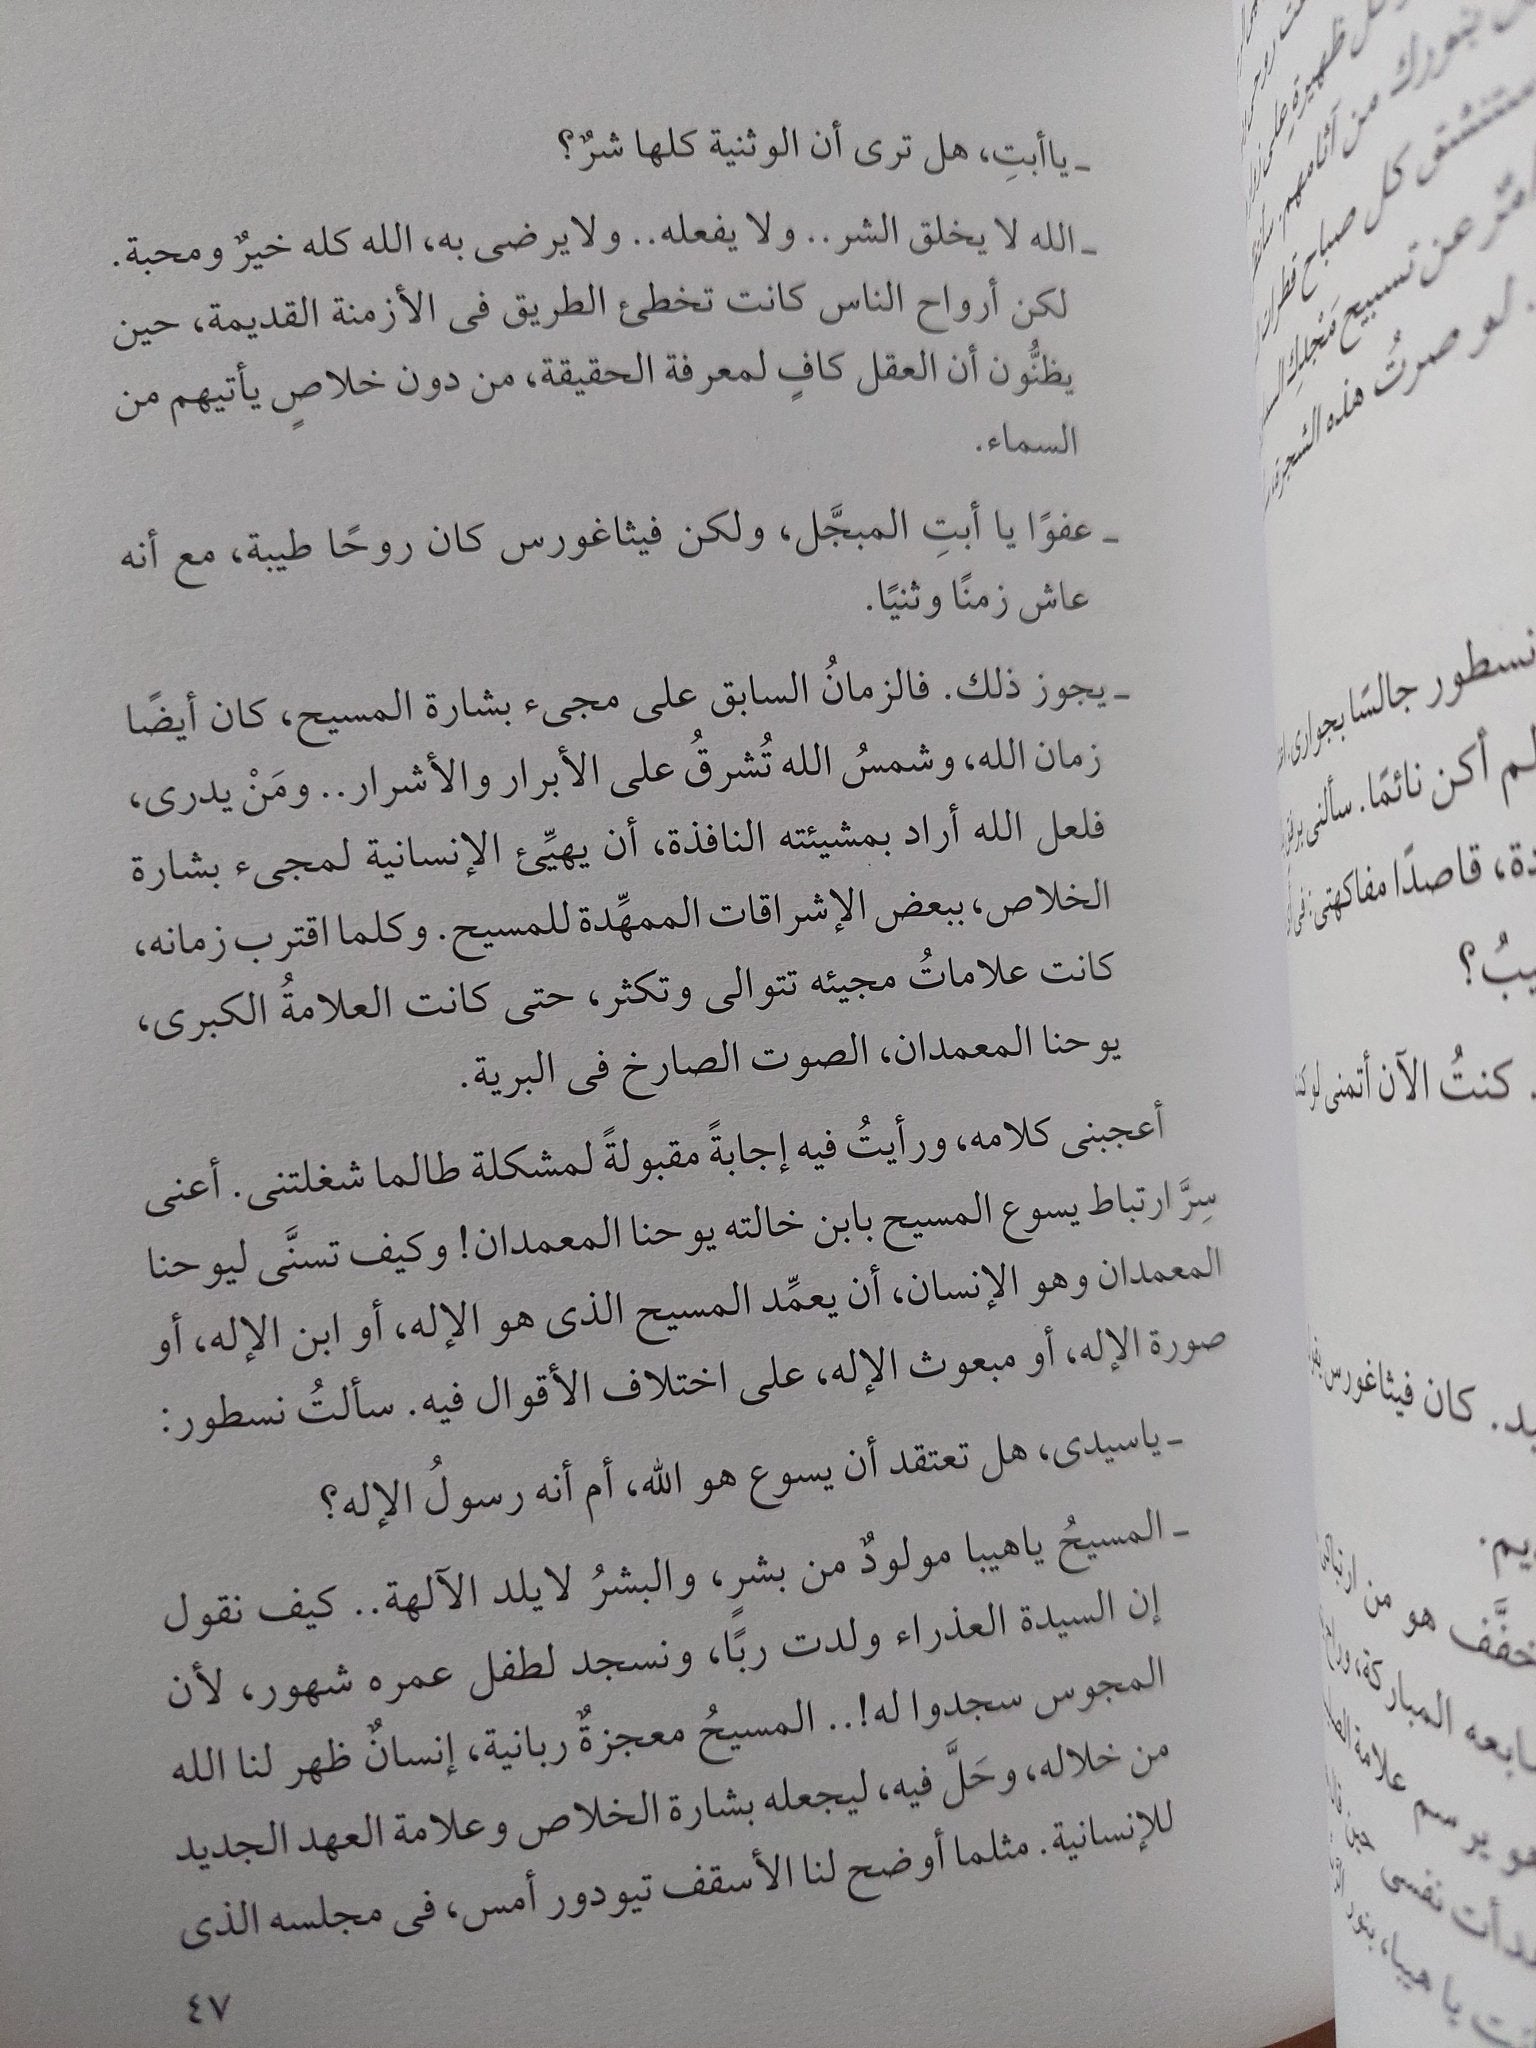 ـ ياأبتِ، هل ترى أن الوثنية كلها شرٌ؟
ـ الله لا يخلق الشر.. ولا يفعله.. ولايرضى به، الله كله خيرٌ ومحبة.
لكن أرواح الناس كانت تخطئ الطريق فى الأزمنة القديمة، حين
يظنُّون أن العقل كافٍ لمعرفة الحقيقة، من دون خلاصٍ يأتيهم من
السماء.
ـ عفوًا يا أبتِ المبجَّل، ولكن فيثاغورس كان روحًا طيبة، مع أنه
عاش زمنًا وثنيًا.
ـ يجوز ذلك. فالزمانُ السابق على مجىء بشارة المسيح، كان أيضًا
زمان الله، وشمسُ الله تُشرقُ على الأبرار والأشرار.. ومَنْ يدرى،
فلعل الله أراد بمشيئته النافذة، أن يهيِّئ الإنسانية لمجىء بشارة
الخلاص، ببعض الإشراقات الممهِّدة للمسيح. وكلما اقترب زمانه،
كانت علاماتُ مجيئه تتوالى وتكثر، حتى كانت العلامةُ الكبرى،
يوحنا المعمدان، الصوت الصارخ فى البرية.
أعجبنى كلامه، ورأيتُ فيه إجابةً مقبولةً لمشكلة طالما شغلتنى. أعنى
سِرَّ ارتباط يسوع المسيح بابن خالته يوحنا المعمدان! وكيف تسنَّى ليوحنا
المعمدان وهو الإنسان، أن يعمِّد المسيح الذى هو الإله، أو ابن الإله، أو
صورة الإله، أو مبعوث الإله، على اختلاف الأقوال فيه. سألتُ نسطور:
ـ ياسيدى، هل تعتقد أن يسوع هو الله، أم أنه رسولُ الإله؟
ـ المسيحُ ياهيبا مولودٌ من بشرٍ، والبشرُ لايلد الآلهة.. كيف نقول
إن السيدة العذراء ولدت ربًا، ونسجد لطفل عمره شهور، لأن
المجوس سجدوا له!.. المسيحُ معجزةٌ ربانية، إنسانٌ ظهر لنا الله
من خلاله، وحَلَّ فيه، ليجعله بشارة الخلاص وعلامة العهد الجديد
للإنسانية. مثلما أوضح لنا الأسقف تيودور أمس، فى مجلسه الذى
٤٧
ظهيرةٍ على
بنورك من آثامهم.
كل صباح قطرات
عن تسبيح مَجْدِكِ
لو صرتُ هذه الشجرة
نسطور جالسًا بجوارى،
لم أكن نائمًا. سألنى
قاصدًا مفاكهتى:
كنتُ الآن أتمنى لو
كان فيثاغورس
هو من
المباركة،
يرسم علامة
نفسى حين
يا هيبا، بنور